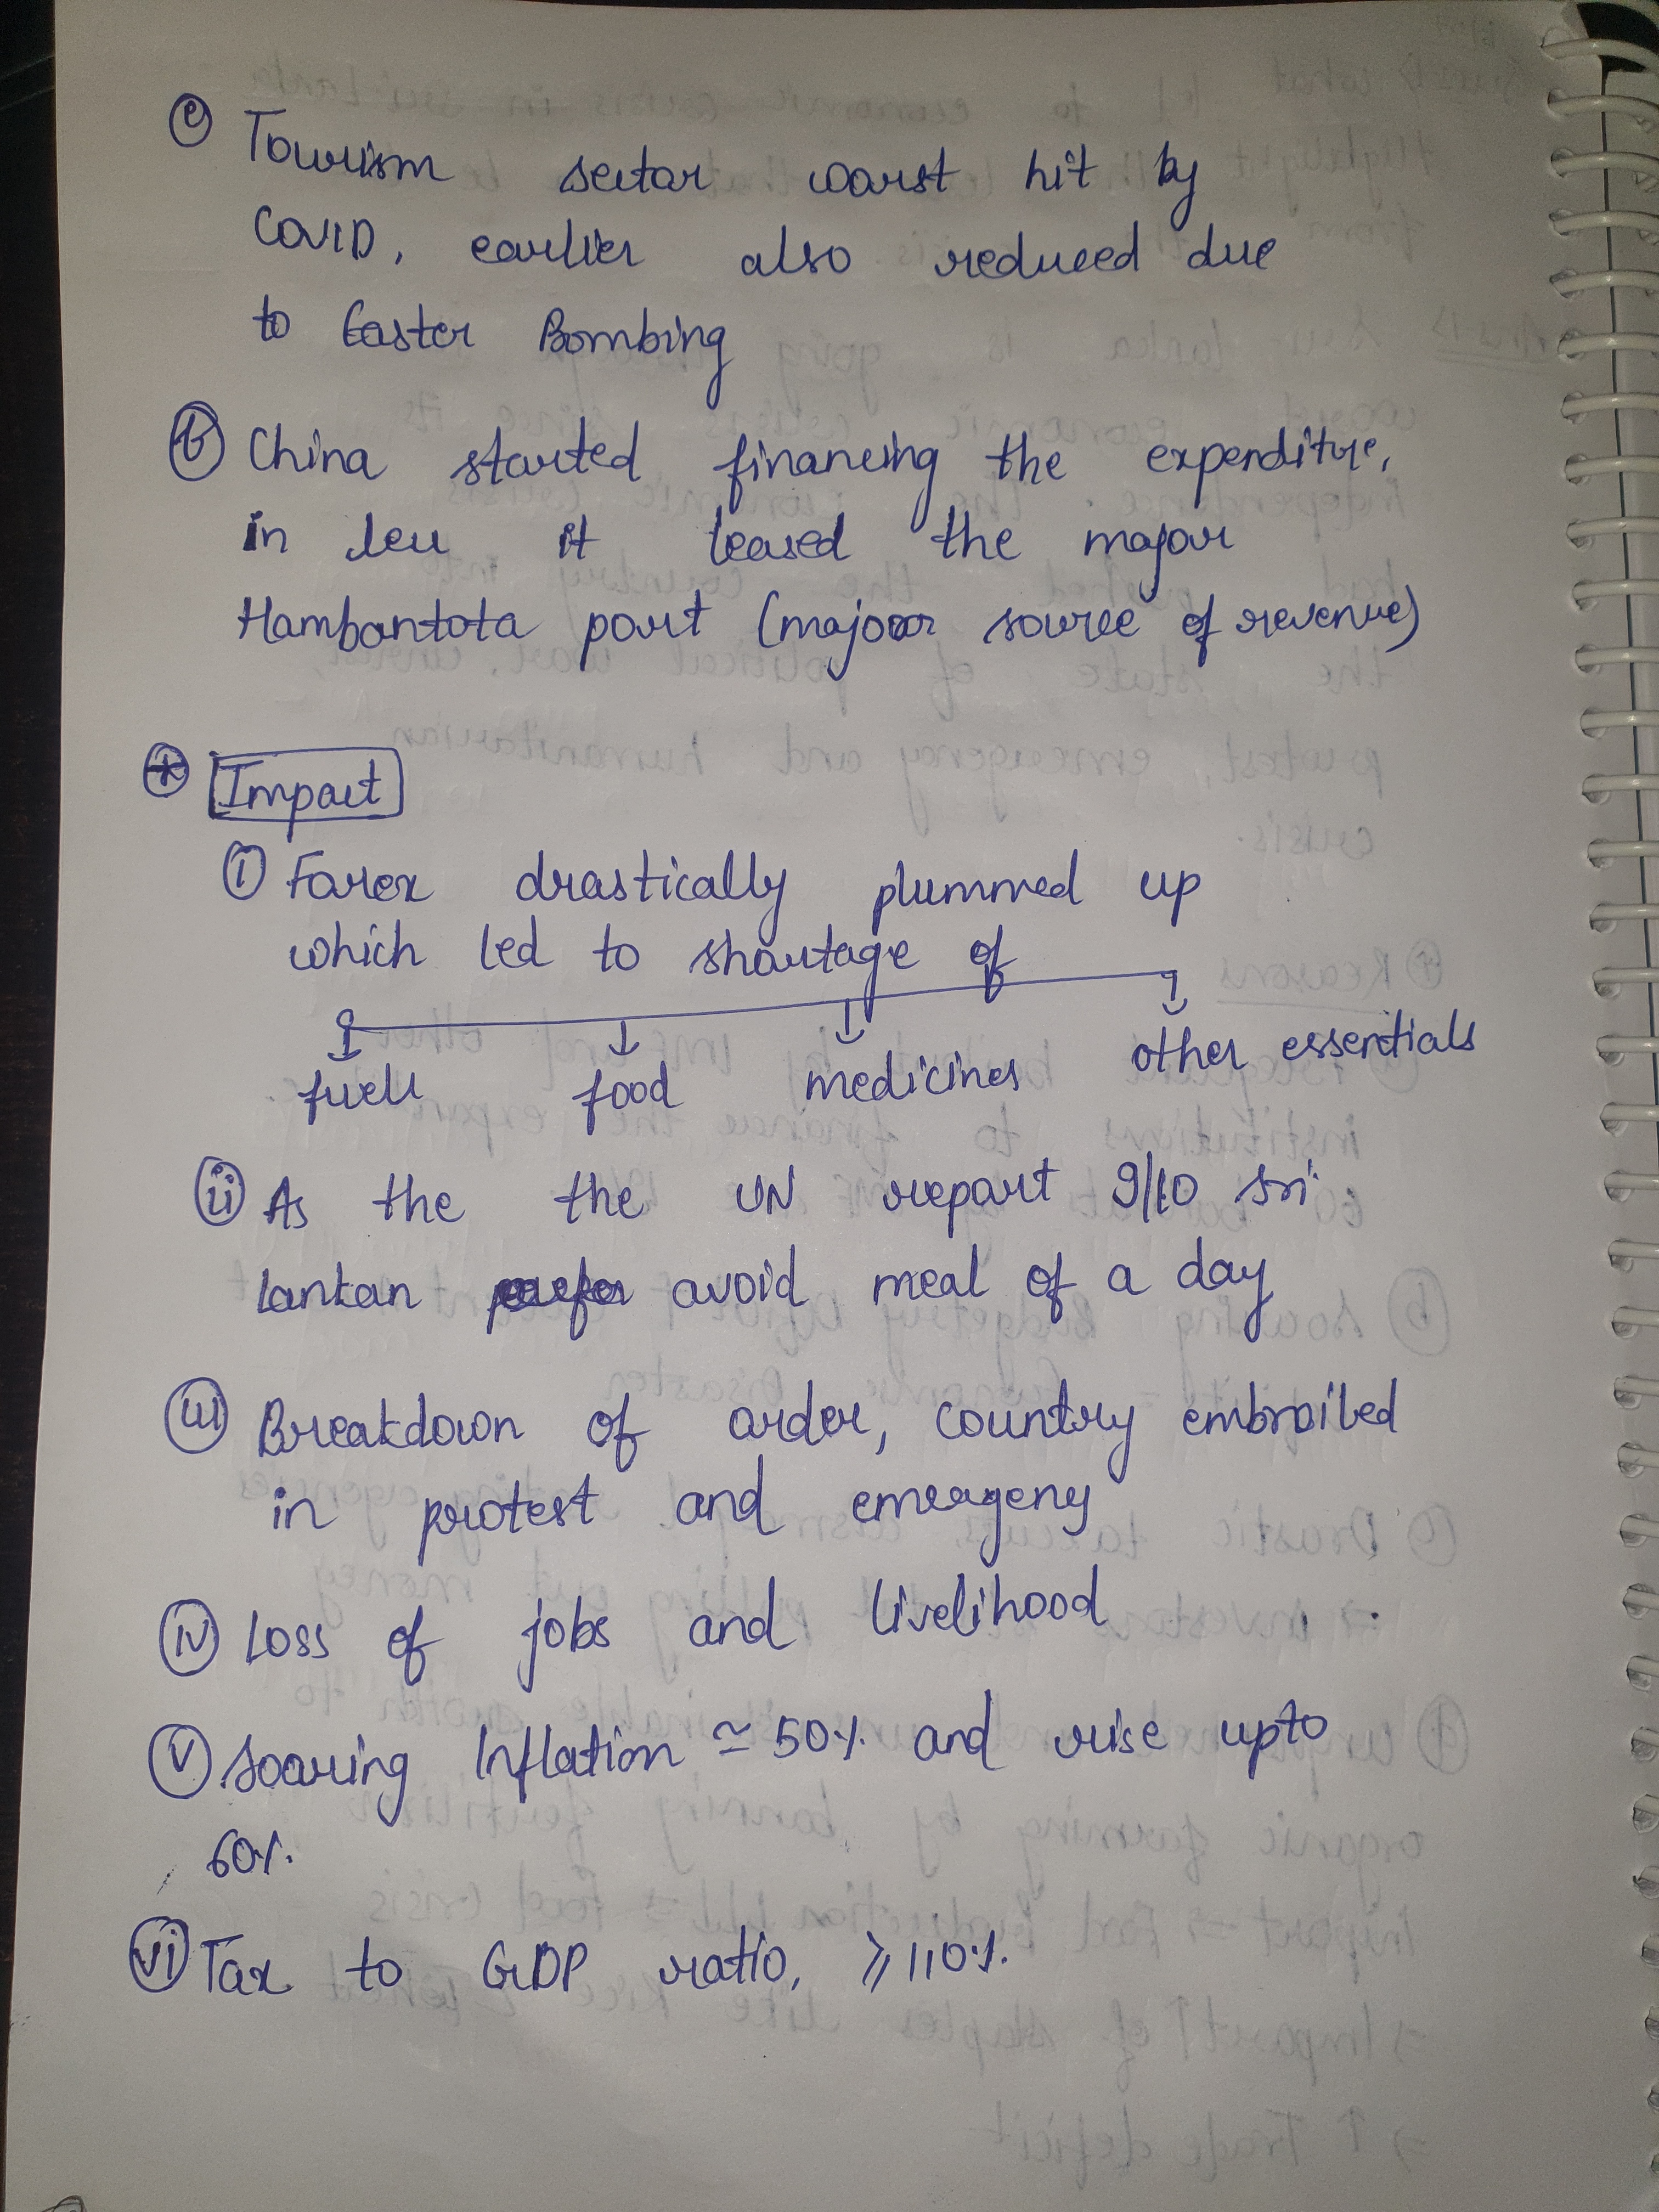 e Tourism sector worst hit by
COVID, earlier also reduced due
to Easter Bombing
f China started financing the expenditure,
in leu it leased the major
Hambantota port (major source of revenue)
* Impact
i Forex drastically plummed up
which led to shortage of
fuels food medicines other essentials
ii As the the UN report 9/10 sri
lankan avoid meal of a day
iii Breakdown of order, country embroiled
in protest and emergeny
iv Loss of jobs and livelihood
v soaring Inflation ≃ 50% and rise upto
60%.
vi Tax to GDP ratio, ≥ 110%.